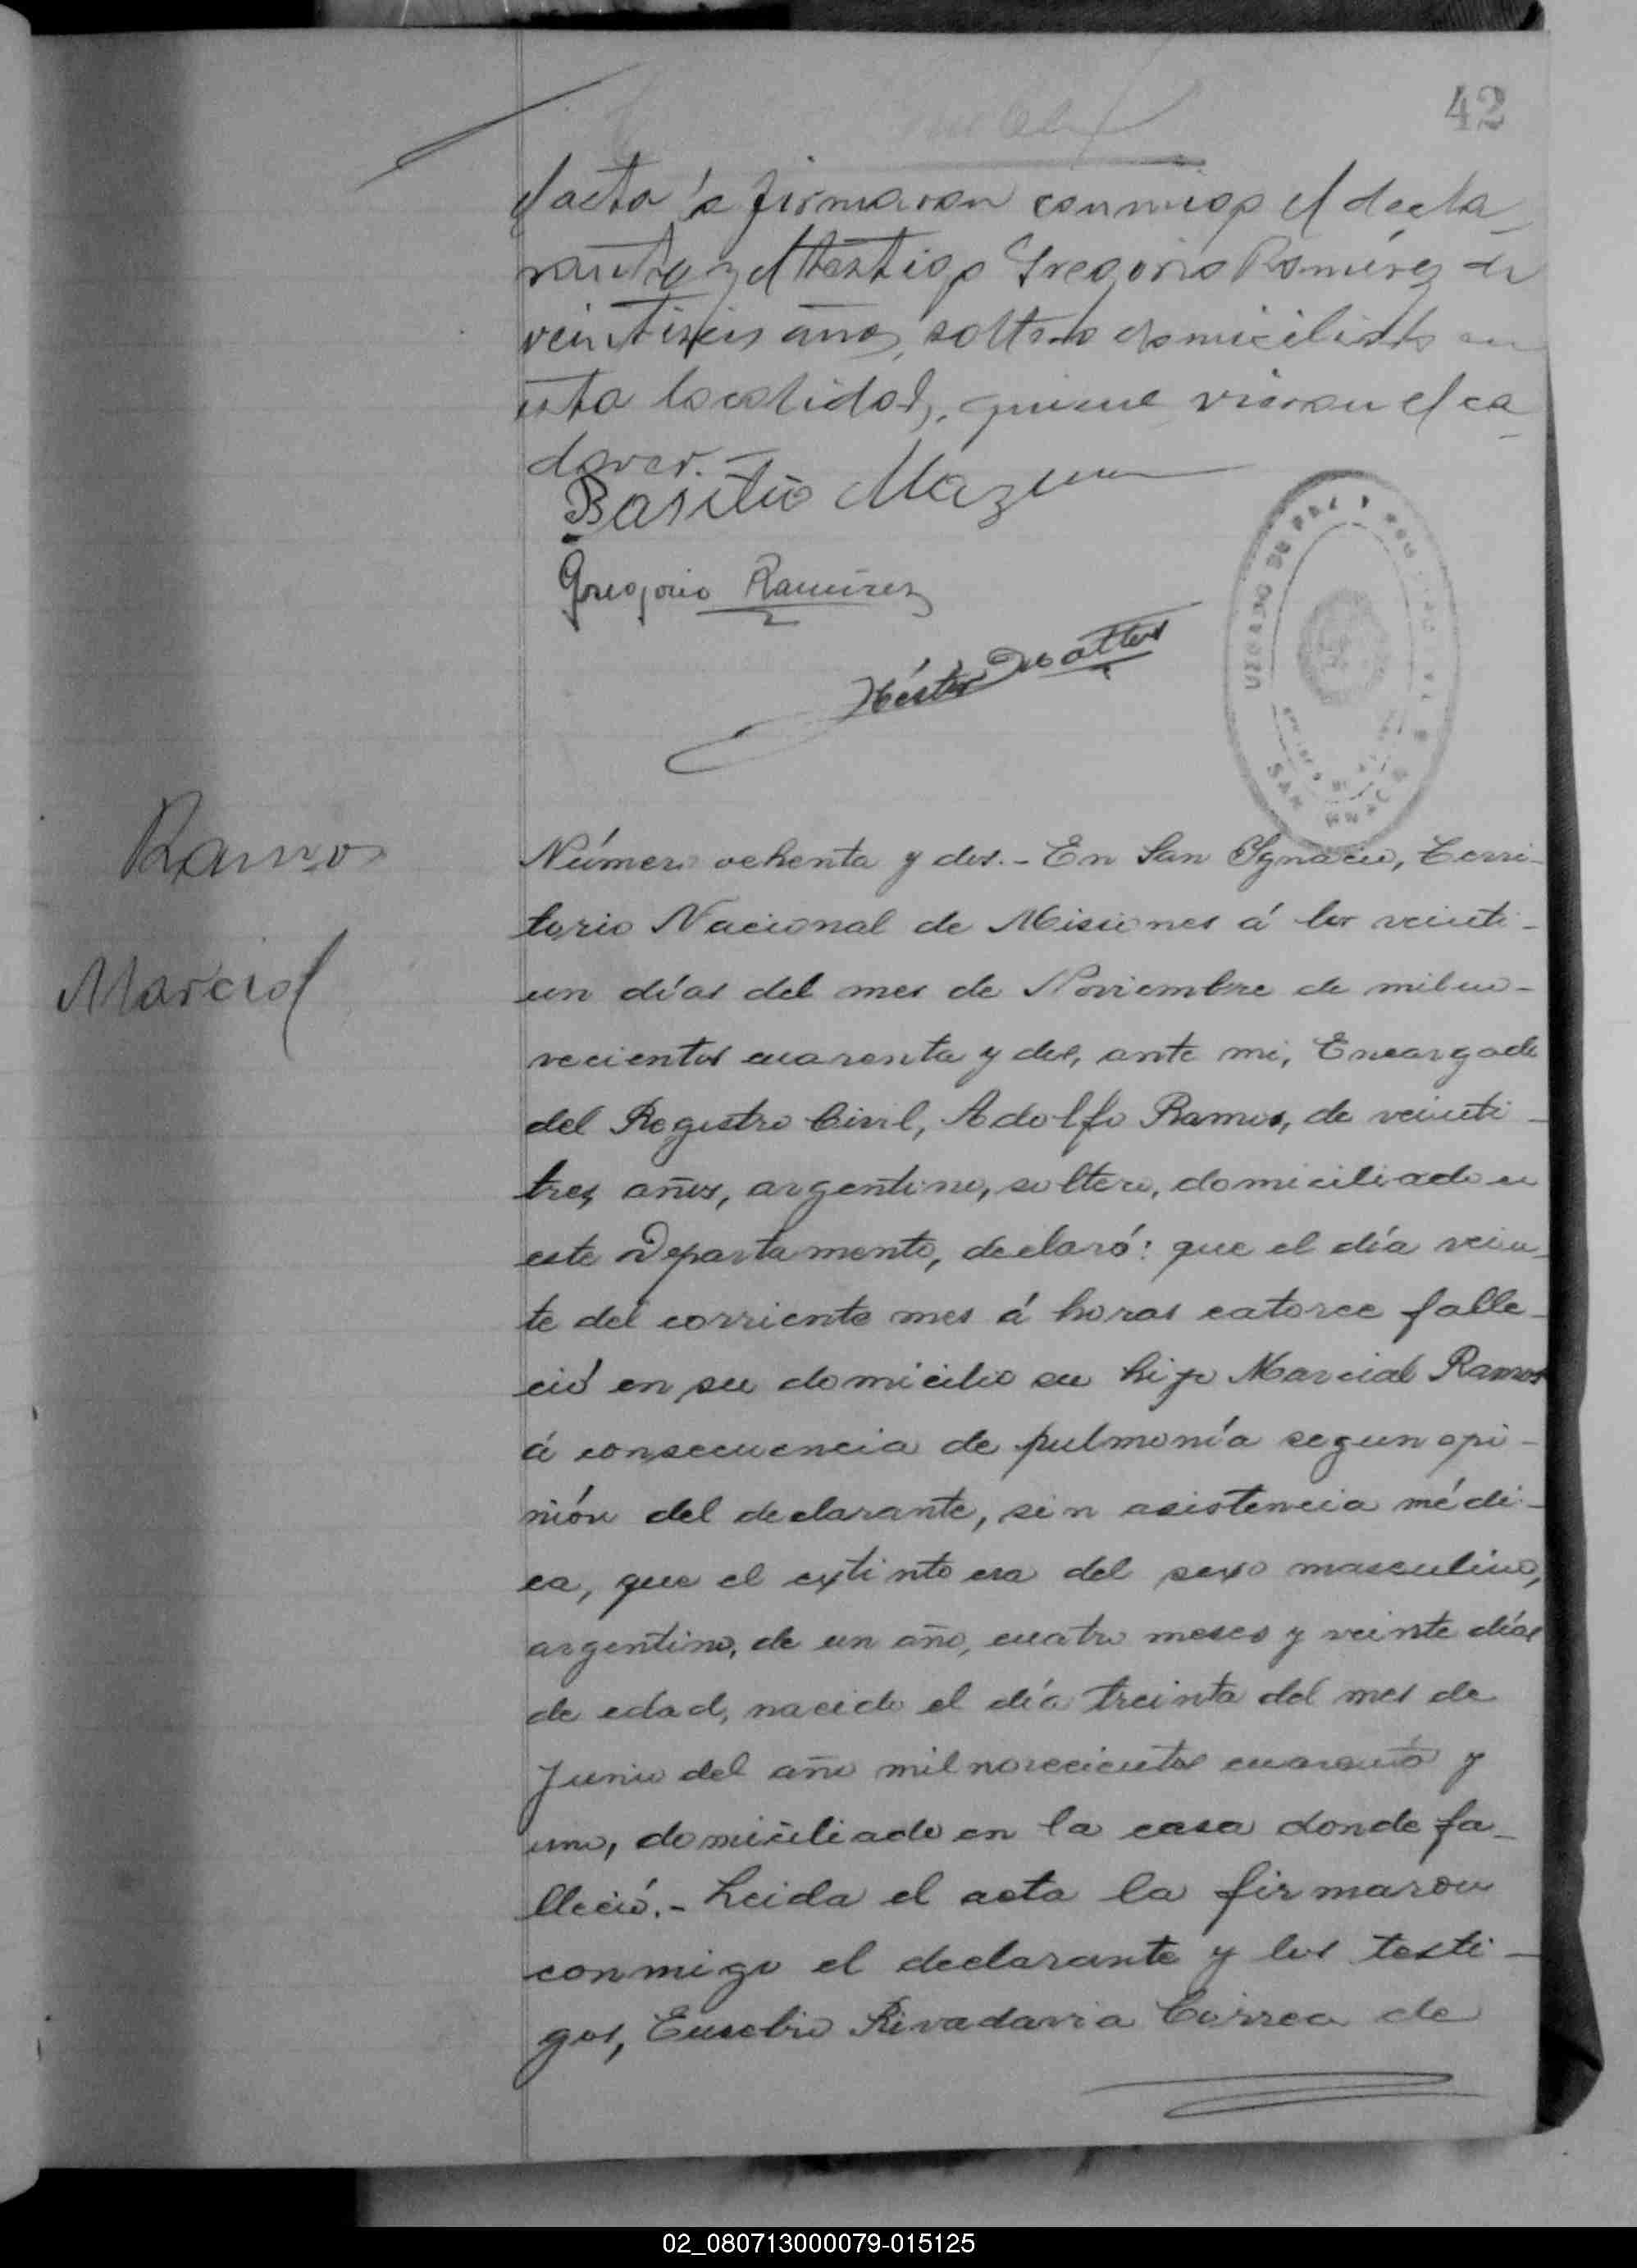 42
el acta la firmaron conmigo el decla-
rante y el testigo Gregorio Ramírez de
veintiseis años, soltero domiciliado en
esta localidad, quienes vieron el ca-
daver.-
Basilio
Gregorio Ramirez
Héctor
JUZGADO DE PAZ Y REGISTRO CIVIL
SAN IGNACIO
Ramos
Marcial
Número ochenta y dos.- En San Ygnacio, Terri-
torio Nacional de Misiones á los veinti-
un días del mes de Noviembre de mil no-
vecientos cuarenta y dos, ante mi, Encargado
del Registro Civil, Adolfo Ramos, de veinti-
tres años, argentino, soltero, domiciliado en
este Departamento, declaró: que el día vein-
te del corriente mes á horas catorce falle-
ció en su domicilio su hijo Marcial Ramos
á consecuencia de pulmonía segun opi-
nión del declarante, sin asistencia médi-
ca, que el extinto era del sexo masculino,
argentino, de un año, cuatro meses y veinte días
de edad, nacido el día treinta del mes de
Junio del año mil novecientos cuarenta y
uno, domiciliado en la casa donde fa-
lleció.- Leida el acta la firmaron
conmigo el declarante y los testi-
gos, Eusebio Rivadavia Correa de
02_080713000079-015125